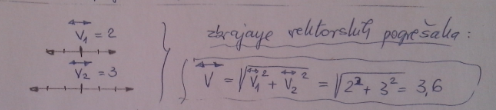 V₁ = 2
V₂ = 3
zbrajanje vektorskih pogrešaka:
V = √V₁² + V₂² = √2² + 3² = 3,6